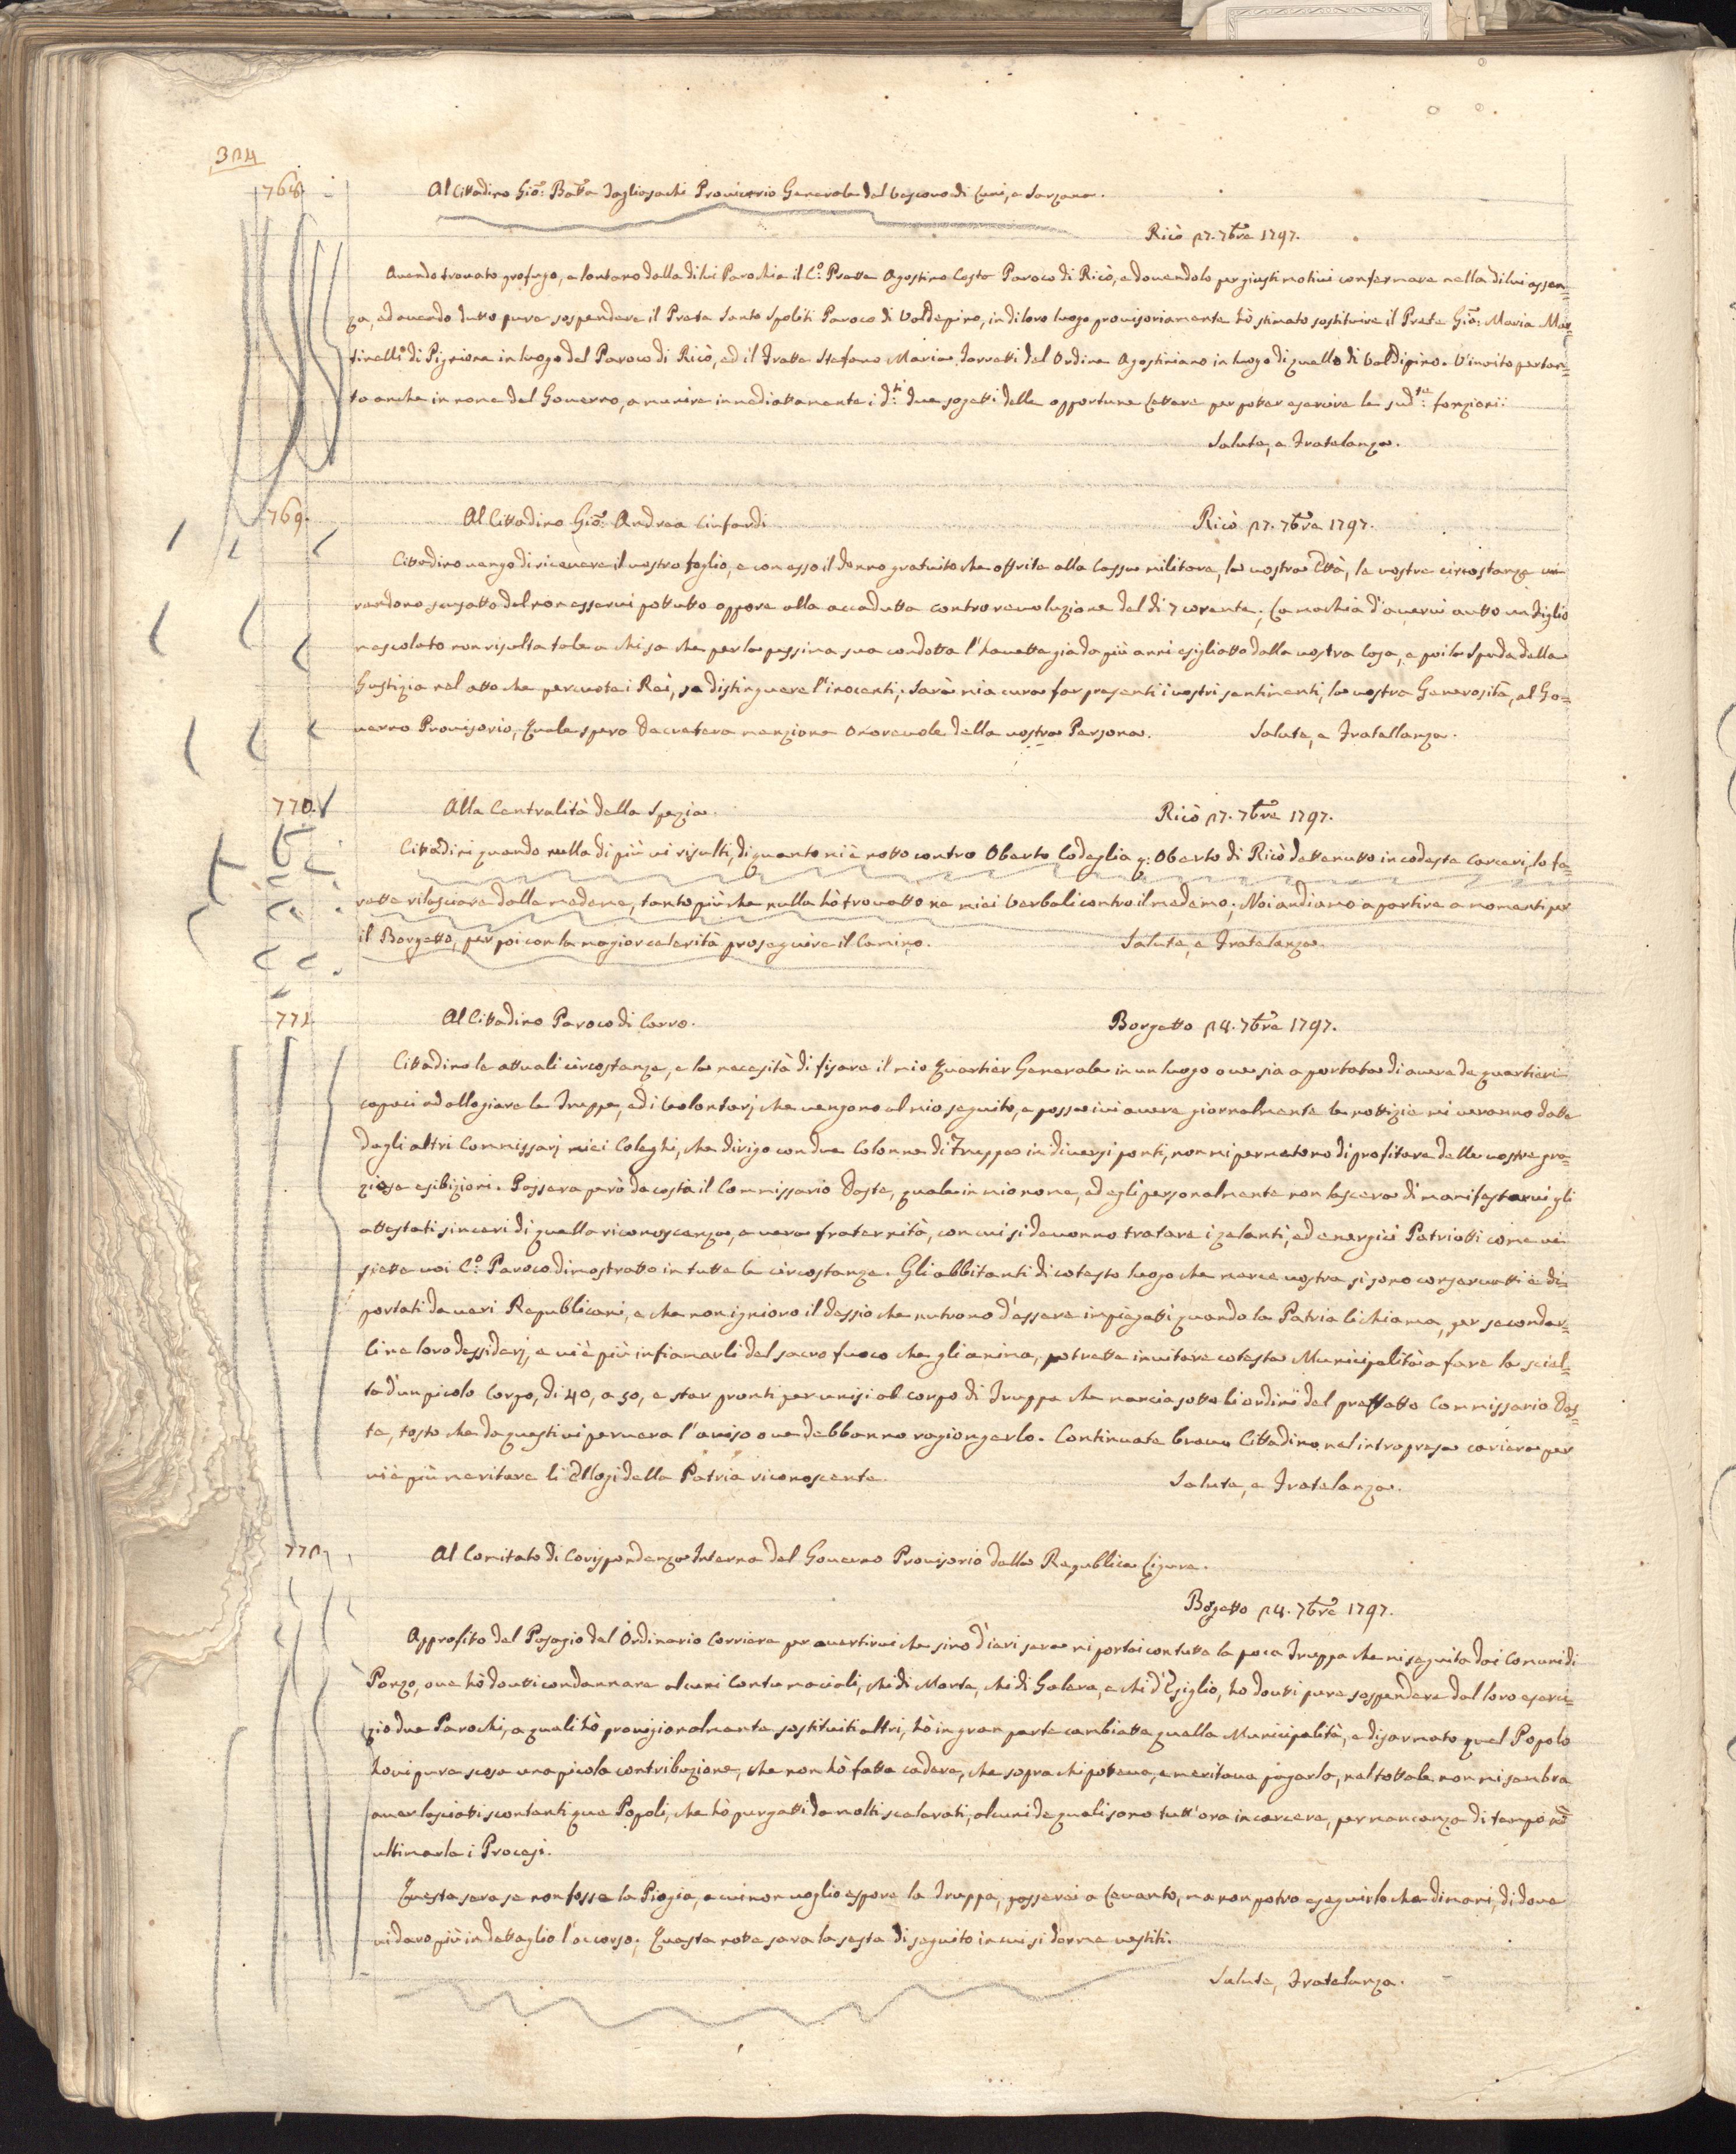 324
768.
Al Cittadino Gio: Batta Tagliasachi Provicario Generale del Vescovo di Luni, e Sarzana.
Ricò 27. 7bre 1797.
Avendo trovato profugo, e lontano dalla di lui Parochia il C.º Prette Agostino Costa Paroco di Ricò, e dovendolo per giusti motivi confermare nella di lui assen=
za, ed avendo dutto pure sospendere il Prete Santo Spoliti Paroco di Valdepino, in di loro luogo provisoriamente hò stimato sostituire il Prete Gio: Maria Mar=
tinelli di Pigniona in luogo del Paroco di Ricò, ed il Fratte Steffano Maria Torretti del Ordine Agostiniano in luogo di quello di Valdipino. V'invito pertan=
to anche in nome del Governo, a munire immediattamente i d.ti due sogetti delle opportune Lettere per potter esercire le sud.te fonzioni:
Salute, e Fratelanza.
769.
Al Cittadino Gio: Andrea Cinfardi
Ricò 27. 7bre 1797.
Cittadino vengo di ricevere il vostro foglio, e con esso il donno gratuito che offrite alla Cassa militare, la vostra Età, le vostre circostanze vi
rendono scusatto del non esservi pottutto oppore alla accadutta controrevoluzione del di 7 corente; La machia d'avervi autto un Figlio
mascolato non risulta tale a chi sa che per la pessima sua condotta l'havette già da più anni esigliatto dalla vostra Casa, e poi la Spada della
Giustizia nel atto che percuote i Rei, sa distinguere l'inocenti; Sarà mia cura far presenti i vostri sentimenti, la vostra Generosità, al Go=
verno Provisorio, Quale spero decretera menzione onorevole della vostra Persona.
Salute, e Fratellanza.
770.
Alla Centralità della Spezia.
Ricò 27. 7bre 1797.
Cittadini quando nulla di più vi risulti, di quanto mi è notto contro Oberto Codeglia q: Oberto di Ricò dettenutto in codeste Carceri, lo fa=
rette rilasciare dalle medeme, tanto più che nulla hò trovatto ne miei Verbali contro il medemo; Noi andiamo a partire a momenti per
il Borgetto, per poi con la magior celerità proseguire il Camino.
Salute, e Fratelanza.
771.
Al Cittadino Paroco di Carro.
Borgetto 28. 7bre 1797.
Cittadino le attuali circostanze, e la necesità di fisare il mio Quartier Generale in un luogo ove sia a portata di avere de quartieri
capaci ad allogiare la Truppa, ed i Volontarj che vengono al mio seguito, e possa ivi avere giornalmente le nottizie mi veranno date
dagli altri Commissarj miei Coleghi, che dirigo con due Colonne di Truppa in diversi ponti, non mi permetono di profitare delle vostre gra=
ziose esibizioni. Passera però da costà il Commissario Daste, quale in mio nome, ed egli personalmente non lascera di manifestarvi gli
attestati sinceri di quella riconoscenza, e vera fraternità, con cui si devonno tratare i zelanti, ed energici Patriotti come vi
siette voi C.º Paroco dimostratto in tutte le circostanze. Gli abbitanti di cotesto luogo che merce vostra si sono conservatti e di
portati da veri Republicani, e che non ignioro il dessio che nutrono d'essere impiegatti quando la Patria li chiama, per secondar=
li ne loro dessiderj, e viè più infiamarli del sacro fuoco che gli anima, potrette invitare cotesta Municipalità a fare la sciel=
ta d'un picolo Corpo, di 40, a 50, e star pronti per unirsi al corpo di Truppe che marcia sotto li ordini del preffatto Commissario Das=
te, tosto che da questi vi pervera l'aviso ove debbanno ragiongerlo. Continuate bravo Cittadino nel intrapresa cariera per
viè più meritare li Ellogi della Patria riconoscente.
Salute, e Fratelanza.
772.
Al Comitato di Corispondenza Interna del Governo Provisorio della Republica Ligure.
Borgetto 28. 7bre 1797.
Approfito del Pasagio del Ordinario Corriere per avertirvi che sino d'ieri sera mi portai con tutta la poca Truppa che mi seguita dai Comuni di
Ponzo, ove hò doutti condannare alcuni Contumaciali, chi di Morte, chi di Galera, e chi d'Esiglio, ho doutti pure sospendere dal loro eserci=
zio due Parochi, a quali hò provigionalmente sostituiti altri, hò in gran parte cambiatta quella Municipalità, e disarmato quel Popolo
hovi pure scosa una picola contribuzione, che non hò fatta cadere, che sopra chi poteva, e meritava pagarla, nel tottale non mi sembra
aver lasciatti scontenti que Popoli, che hò purgatti da molti scelerati, alcuni de quali sono tutt'ora in carcere, per mancanza di tempo ad
ultimarle i Procesi.
Questa sera se non fosse la Piogia, a cui non voglio espore la Truppa, passerei a Levanto, ma non potro eseguirlo che dimani, di dove
vi daro più in dettaglio l'occorso; Questa notte sara la sesta di seguito in cui si dorme vestiti.
Salute, Fratelanza.